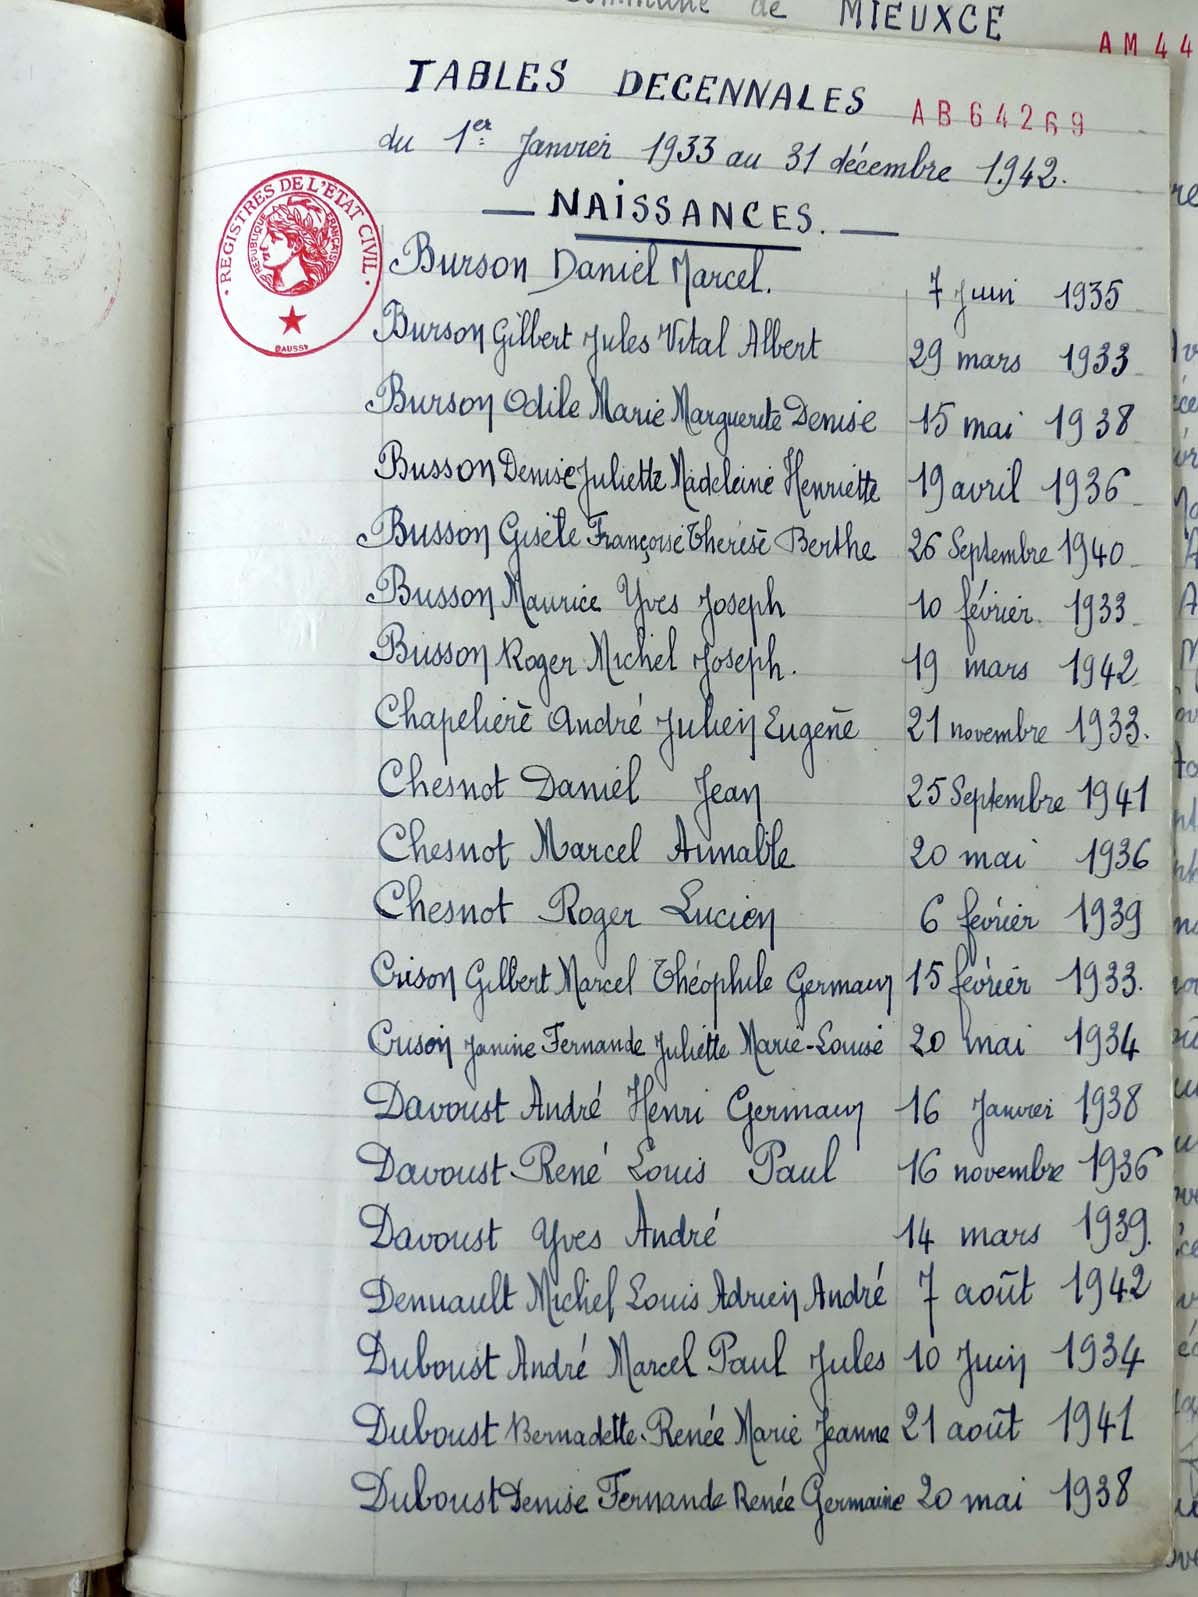 Commune de MIEUXCE
AM 44
TABLES DECENNALES
AB 64269
du 1er Janvier 1933 au 31 décembre 1942.
— NAISSANCES. —
REGISTRES DE L'ETAT CIVIL
REPUBLIQUE FRANCAISE
Burson Daniel Marcel. 7 Juin 1935
Burson Gilbert Jules Vital Albert 29 mars 1933
Burson Odile Marie Marguerite Denise 15 mai 1938
Busson Denise Juliette Madeleine Henriette 19 avril 1936
Busson Gisèle Françoise Thérèse Berthe 26 Septembre 1940
Busson Maurice Yves Joseph 10 février 1933
Busson Roger Michel Joseph. 19 mars 1942
Chapelière André Julien Eugène 21 novembre 1933.
Chesnot Daniel Jean 25 Septembre 1941
Chesnot Marcel Aimable 20 mai 1936
Chesnot Roger Lucien 6 février 1939
Crison Gilbert Marcel Théophile Germain 15 février 1933.
Crison Janine Fernande Juliette Marie-Louise 20 mai 1934
Davoust André Henri Germain 16 Janvier 1938
Davoust René Louis Paul 16 novembre 1936
Davoust Yves André 14 mars 1939.
Denuault Michel Louis Adrien André 7 août 1942
Duboust André Marcel Paul Jules 10 Juin 1934
Duboust Bernadette Renée Marie Jeanne 21 août 1941
Duboust Denise Fernande Renée Germaine 20 mai 1938